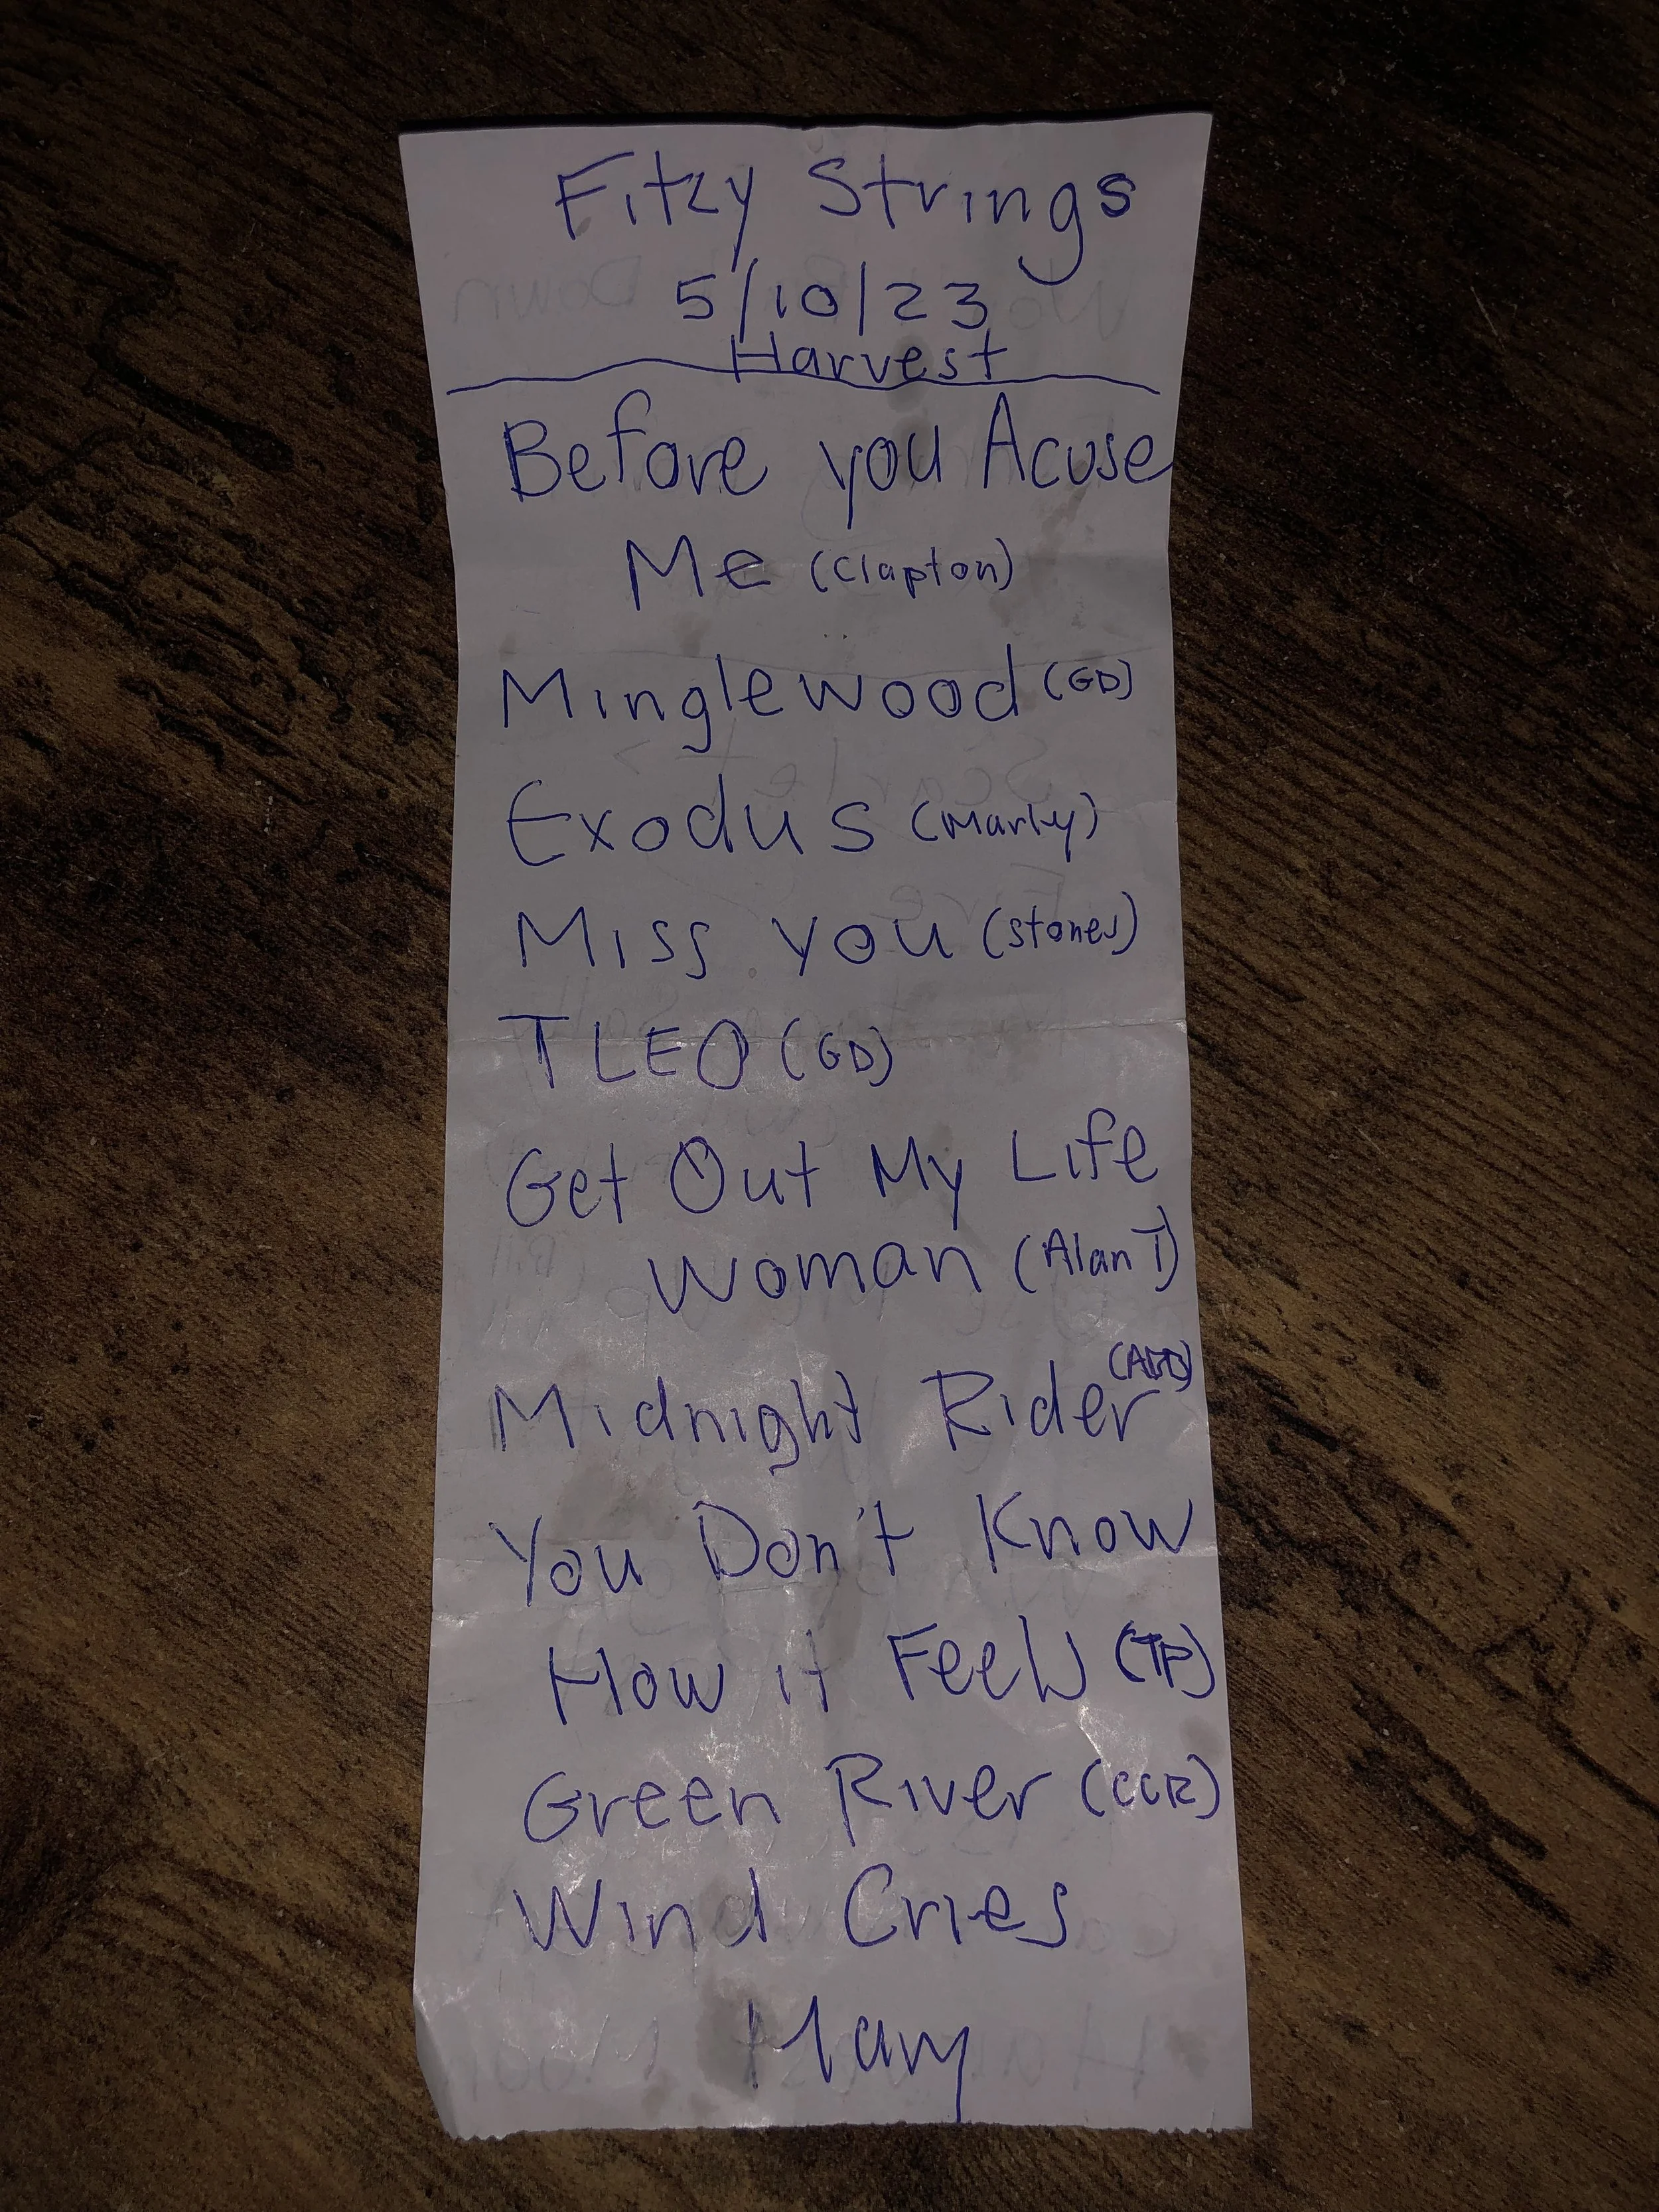 Fitzy Strings
5/10/23
Harvest
Before you Acuse
Me (Clapton)
Minglewood (GD)
Exodus (Marley)
Miss you (stones)
TLEO (GD)
Get Out My Life
Woman (Alan T)
(ABB)
Midnight Rider
You Don't Know
How it Feels (TP)
Green River (CCR)
Wind Cries
Mary